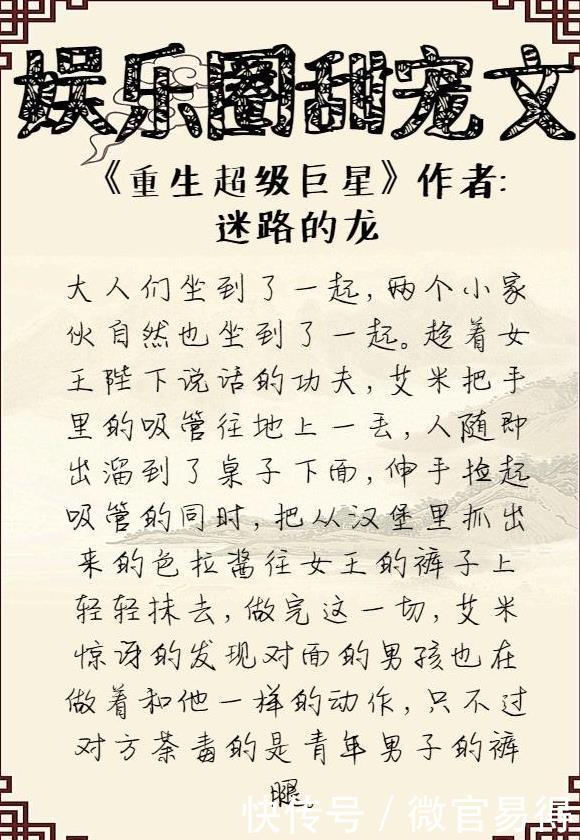 娱乐圈甜宠文
《重生超级巨星》作者:
迷路的龙
大人们坐到了一起,两个小家
伙自然也坐到了一起。趁着女
王陛下说话的功夫,艾米把手
里的吸管往地上一丢,人随即
出溜到了桌子下面,伸手捡起
吸管的同时,把从汉堡里抓出
来的色拉酱往女王的裤子上
轻轻抹去,做完这一切,艾米
惊讶的发现对面的男孩也在
做着和他一样的动作,只不过
对方荼毒的是青年男子的裤
腿。
快传号/微官易得